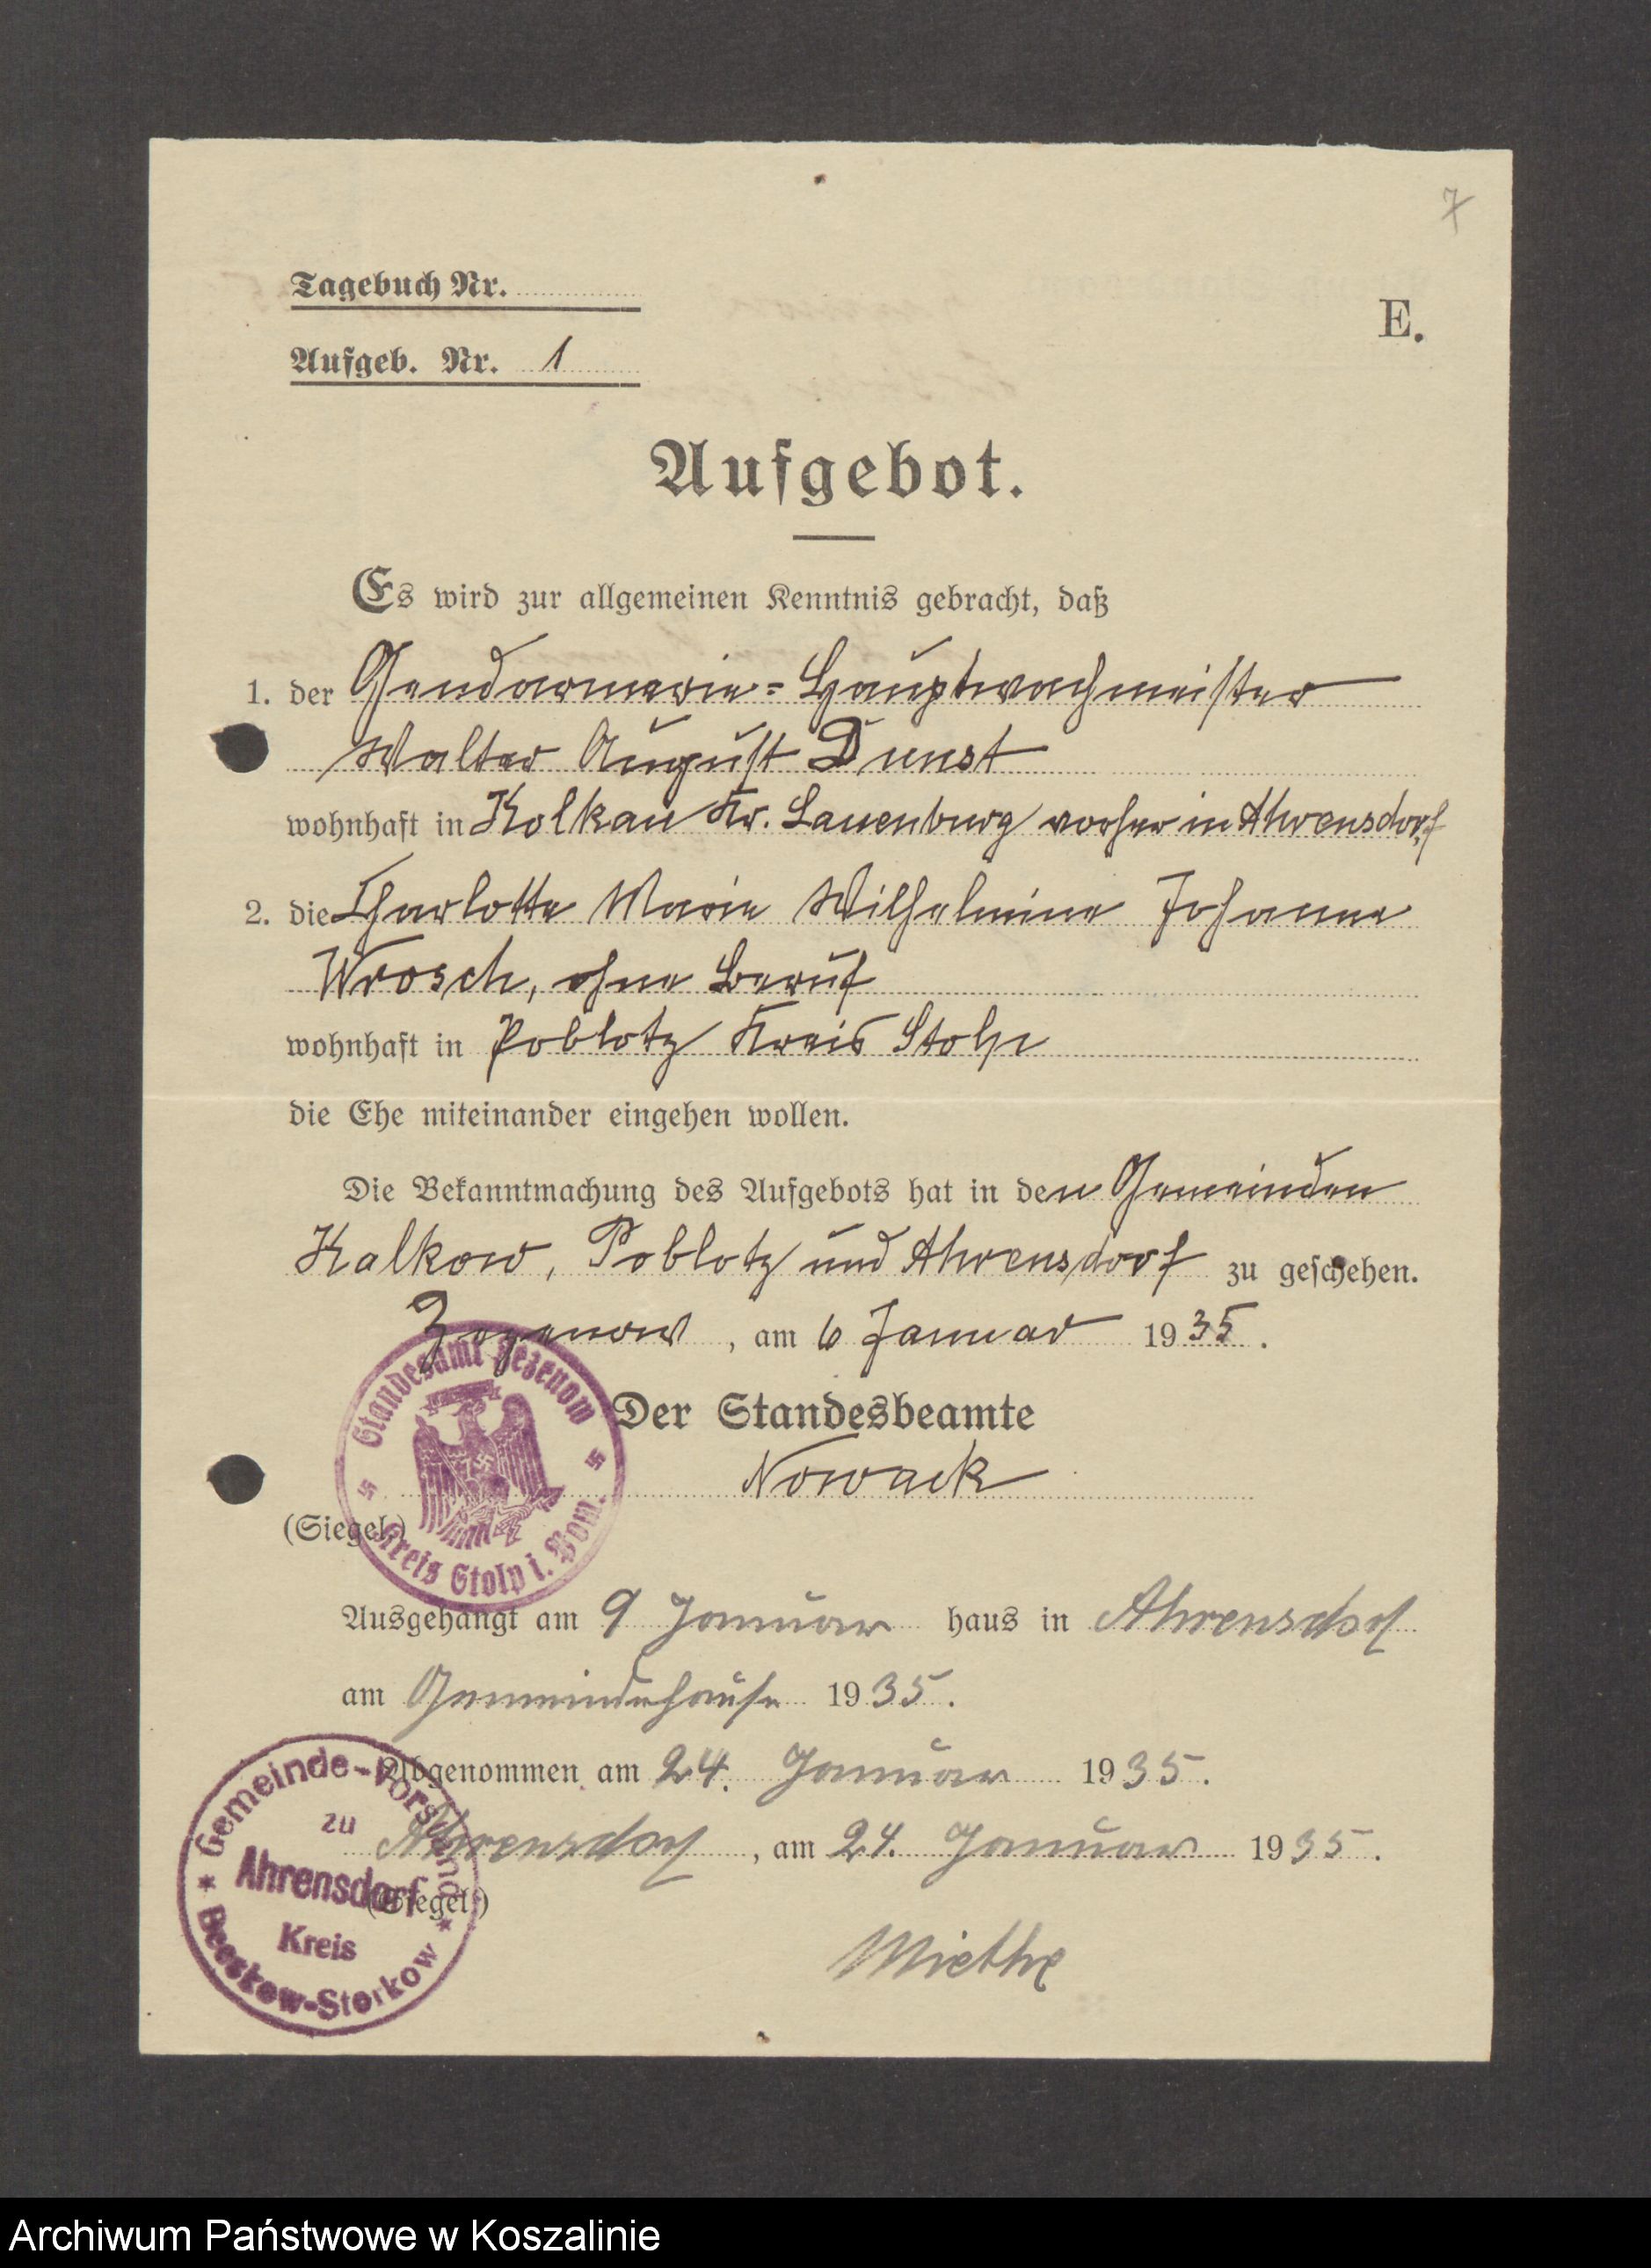 7
Tagebuch Nr.
E.
Aufgeb. Nr. 1
Aufgebot.
Es wird zur allgemeinen Kenntnis gebracht, daß
1. der Gendarmerie-Hauptwachmeister
Walter August Dunst
wohnhaft in Kolkau Kr. Lauenburg vorher in Ahrensdorf
2. die Charlotte Marie Wilhelmine Johanne
Wrosch, ohne Beruf
wohnhaft in Poblotz Kreis Stolp
die Ehe miteinander eingehen wollen.
Die Bekanntmachung des Aufgebots hat in den Gemeinden
Kalkow, Poblotz und Ahrensdorf zu geschehen.
Zezenow, am 6 Januar 1935.
Standesamt Zezenow
Kreis Stolp i. Pom.
Der Standesbeamte
Nowack
(Siegel.)
Ausgehängt am 9 Januar haus in Ahrensdorf
am Gemeindehause 1935.
Abgenommen am 24. Januar 1935.
Ahrensdorf, am 24. Januar 1935.
(Siegel.)
Gemeinde-Vorstand
zu
Ahrensdorf
Kreis
Beeskow-Storkow
Miethe
Archiwum Państwowe w Koszalinie